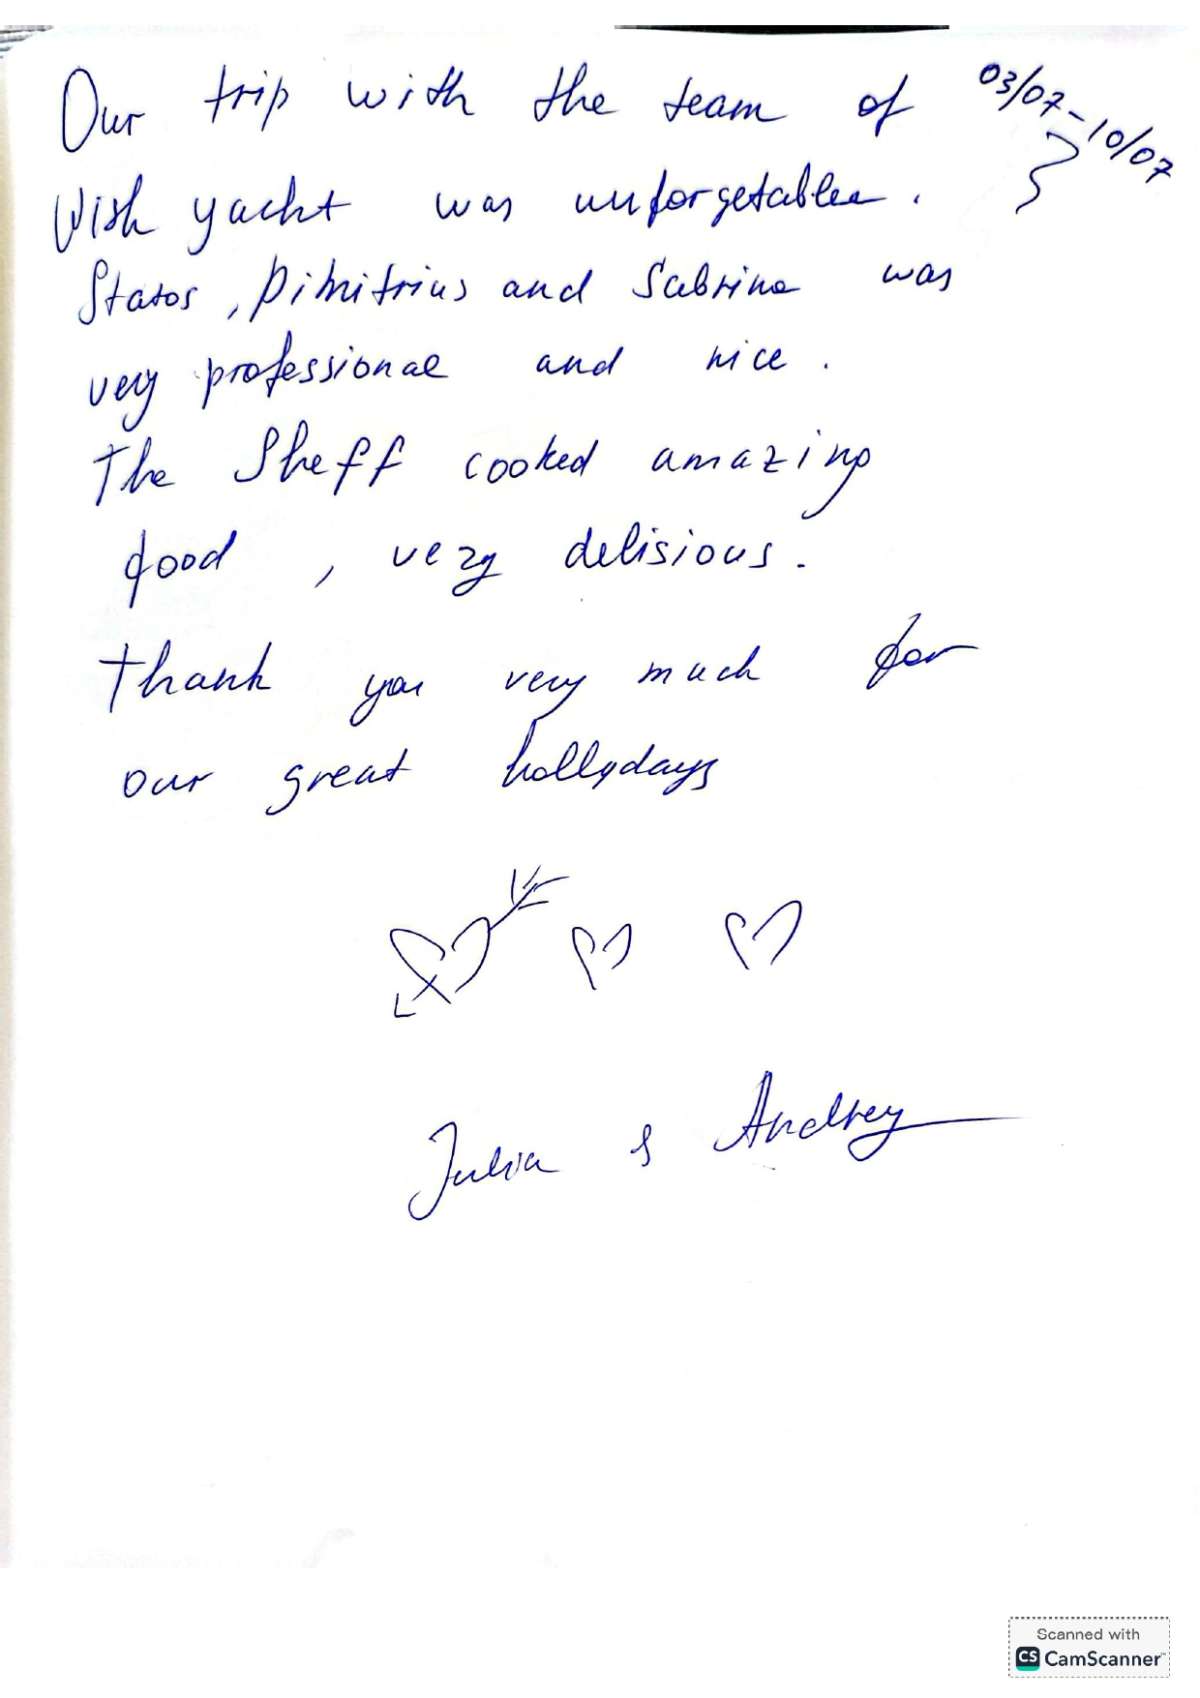 Our trip with the team of
03/07-10/07
Wish yacht was unforgetablee.
Statos, Dimitrius and Sabrina was
very professional and nice.
The Sheff cooked amazing
food, very delisious.
Thank you very much for
our great hollydays
Julia & Andrey
Scanned with
CS CamScanner